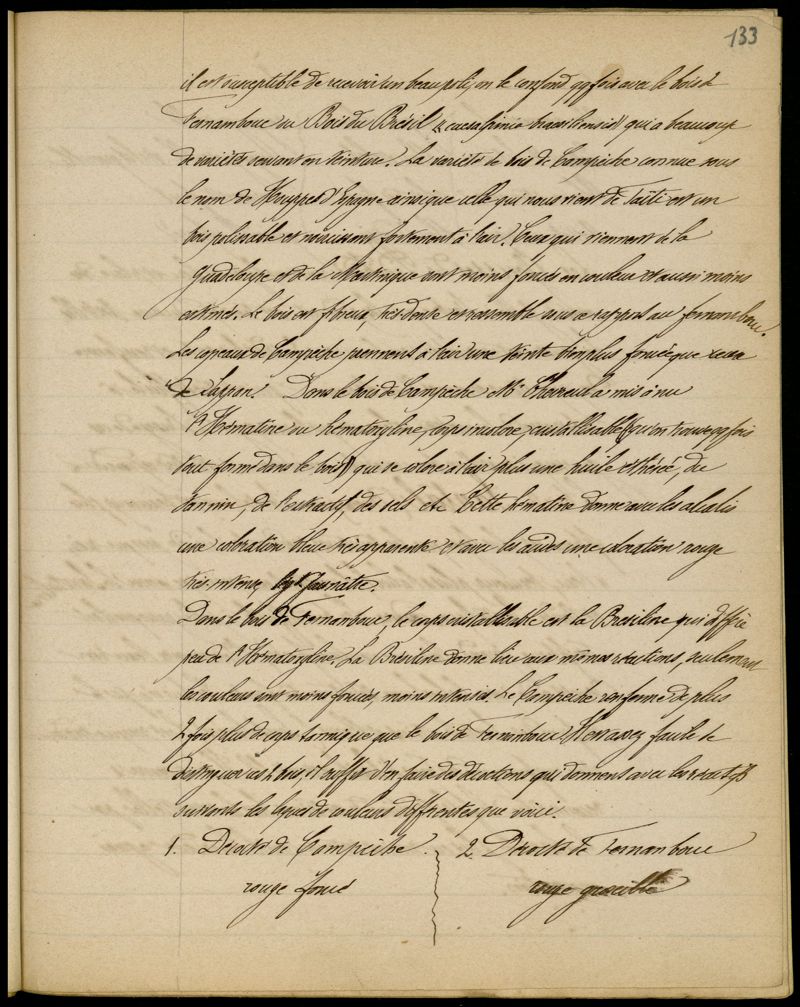 133
il est susceptible de recevoir un beau poli, on le confond qqfois avec le bois de
Fernambouc ou Bois du Brésil (caesalpinia brasiliensis) qui a beaucoup
de variétés servant en teinture. La variété de bois de Campêche connue sous
le nom de d'Espagne ainsi que celle qui nous vient de Taïti est un
bois polissable et noircissant fortement à l'air. Ceux qui viennent de la
Guadeloupe et de la Martinique sont moins foncés en couleur et aussi moins
estimés. Le bois est fibreux, très dense et ressemble sous ce rapport au fernambouc.
Les copeaux de Campêche prennent à l'air une teinte bien plus foncée que ceux
de Sappan. Dans le bois de Campêche Mr Chevreul a mis à nu
l'Hématine ou hématoxyline, corps incolore, cristallisable (qu'on trouve qqfois
tout formé dans le bois) qui se colore à l'air plus une huile éthérée, du
tannin, de l'extractif, des sels etc. Cette hématine donne avec les alcalis
une coloration bleue très apparente et avec les acides une coloration rouge
très-intense, légt jaunâtre.
Dans le bois de Fernambouc, le corps cristallisable est la Brésiline qui diffère
peu de l'Hématoxyline. La Brésiline donne lieu aux mêmes réactions, seulement
les couleurs sont moins foncées, moins intenses. Le Campêche renferme de plus
2 fois plus de corps tannique que le bois de Fernambouc. Il est assez facile de
distinguer ces 2 bois, il suffit d'en faire des décoctions qui donnent avec les réactifs
suivants les laques de couleurs différentes que voici.
1. Décocté de Campêche
rouge foncé
2. Décocté de Fernambouc
rouge groseille